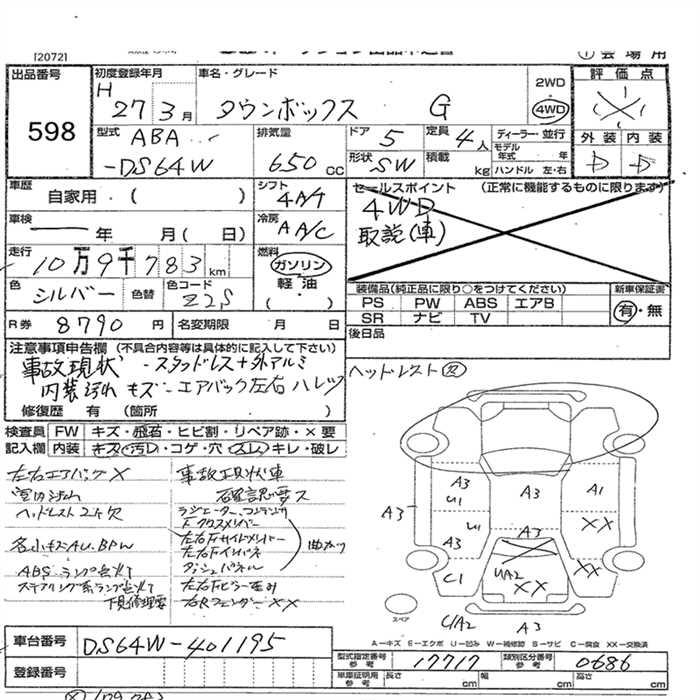 [2072]
①会場用
出品番号
598
初度登録年月
H 27年3月
車名・グレード
タウンボックス G
2WD
4WD
評価点
外装 内装
D D
型式
ABA
-DS64W
排気量
650 cc
ドア 5
定員 4人
形状 SW
積載 kg
ディーラー・並行
モデル年式 年
ハンドル 左・右
車歴 自家用 ( )
シフト 4A/T
車検 年 月 ( 日)
冷房 A A/C
走行 10万9千783km
燃料 ガソリン
軽油・
( )
色 シルバー 色替
色コード Z2S
R券 8790円
名変期限 月 日
セールスポイント (正常に機能するものに限ります)
4WD
取説(車)
装備品(純正品に限り○をつけてください)
新車保証書
PS PW ABS エアB
SR ナビ TV
有・無
後日品
注意事項申告欄 (不具合内容等は具体的に記入して下さい)
事故現状 - スタッドレス+外アルミ
内装汚れ キズ - エアバック左右ハレツ
修復歴 有 (箇所 )
ヘッドレスト②
検査員記入欄
FW キズ・飛石・ヒビ割・リペア跡・×要
内装 キズ・汚レ・コゲ・穴・スレ・キレ・破レ
左右エアバック×
事故現状車
室内汚れ
確認要ス
ヘッドレスト2ケ欠
ラジエーター、コンデンサ
Fクロスメンバー
各小キズAU.BPW
左右Fサイドメンバー
曲がり
左右Fインパネ
ABSランプ点灯
ダッシュパネル
ステアリング系ランプ点灯
左右Fピラー歪み
下見修理要
右Rフェンダー××
A3
A3
U1
A3
A1
U1
××
A3
A3
C1
UA2
××
××
U/A2
A3
スペア
A-キズ E-エクボ U-凹み W-補修跡 S-サビ C-腐食 XX-交換済
車台番号 DS64W-401195
登録番号
型式指定番号 参考 17717
類別区分番号 参考 0686
車庫証明用 参考 長さ cm 幅 cm 高さ cm